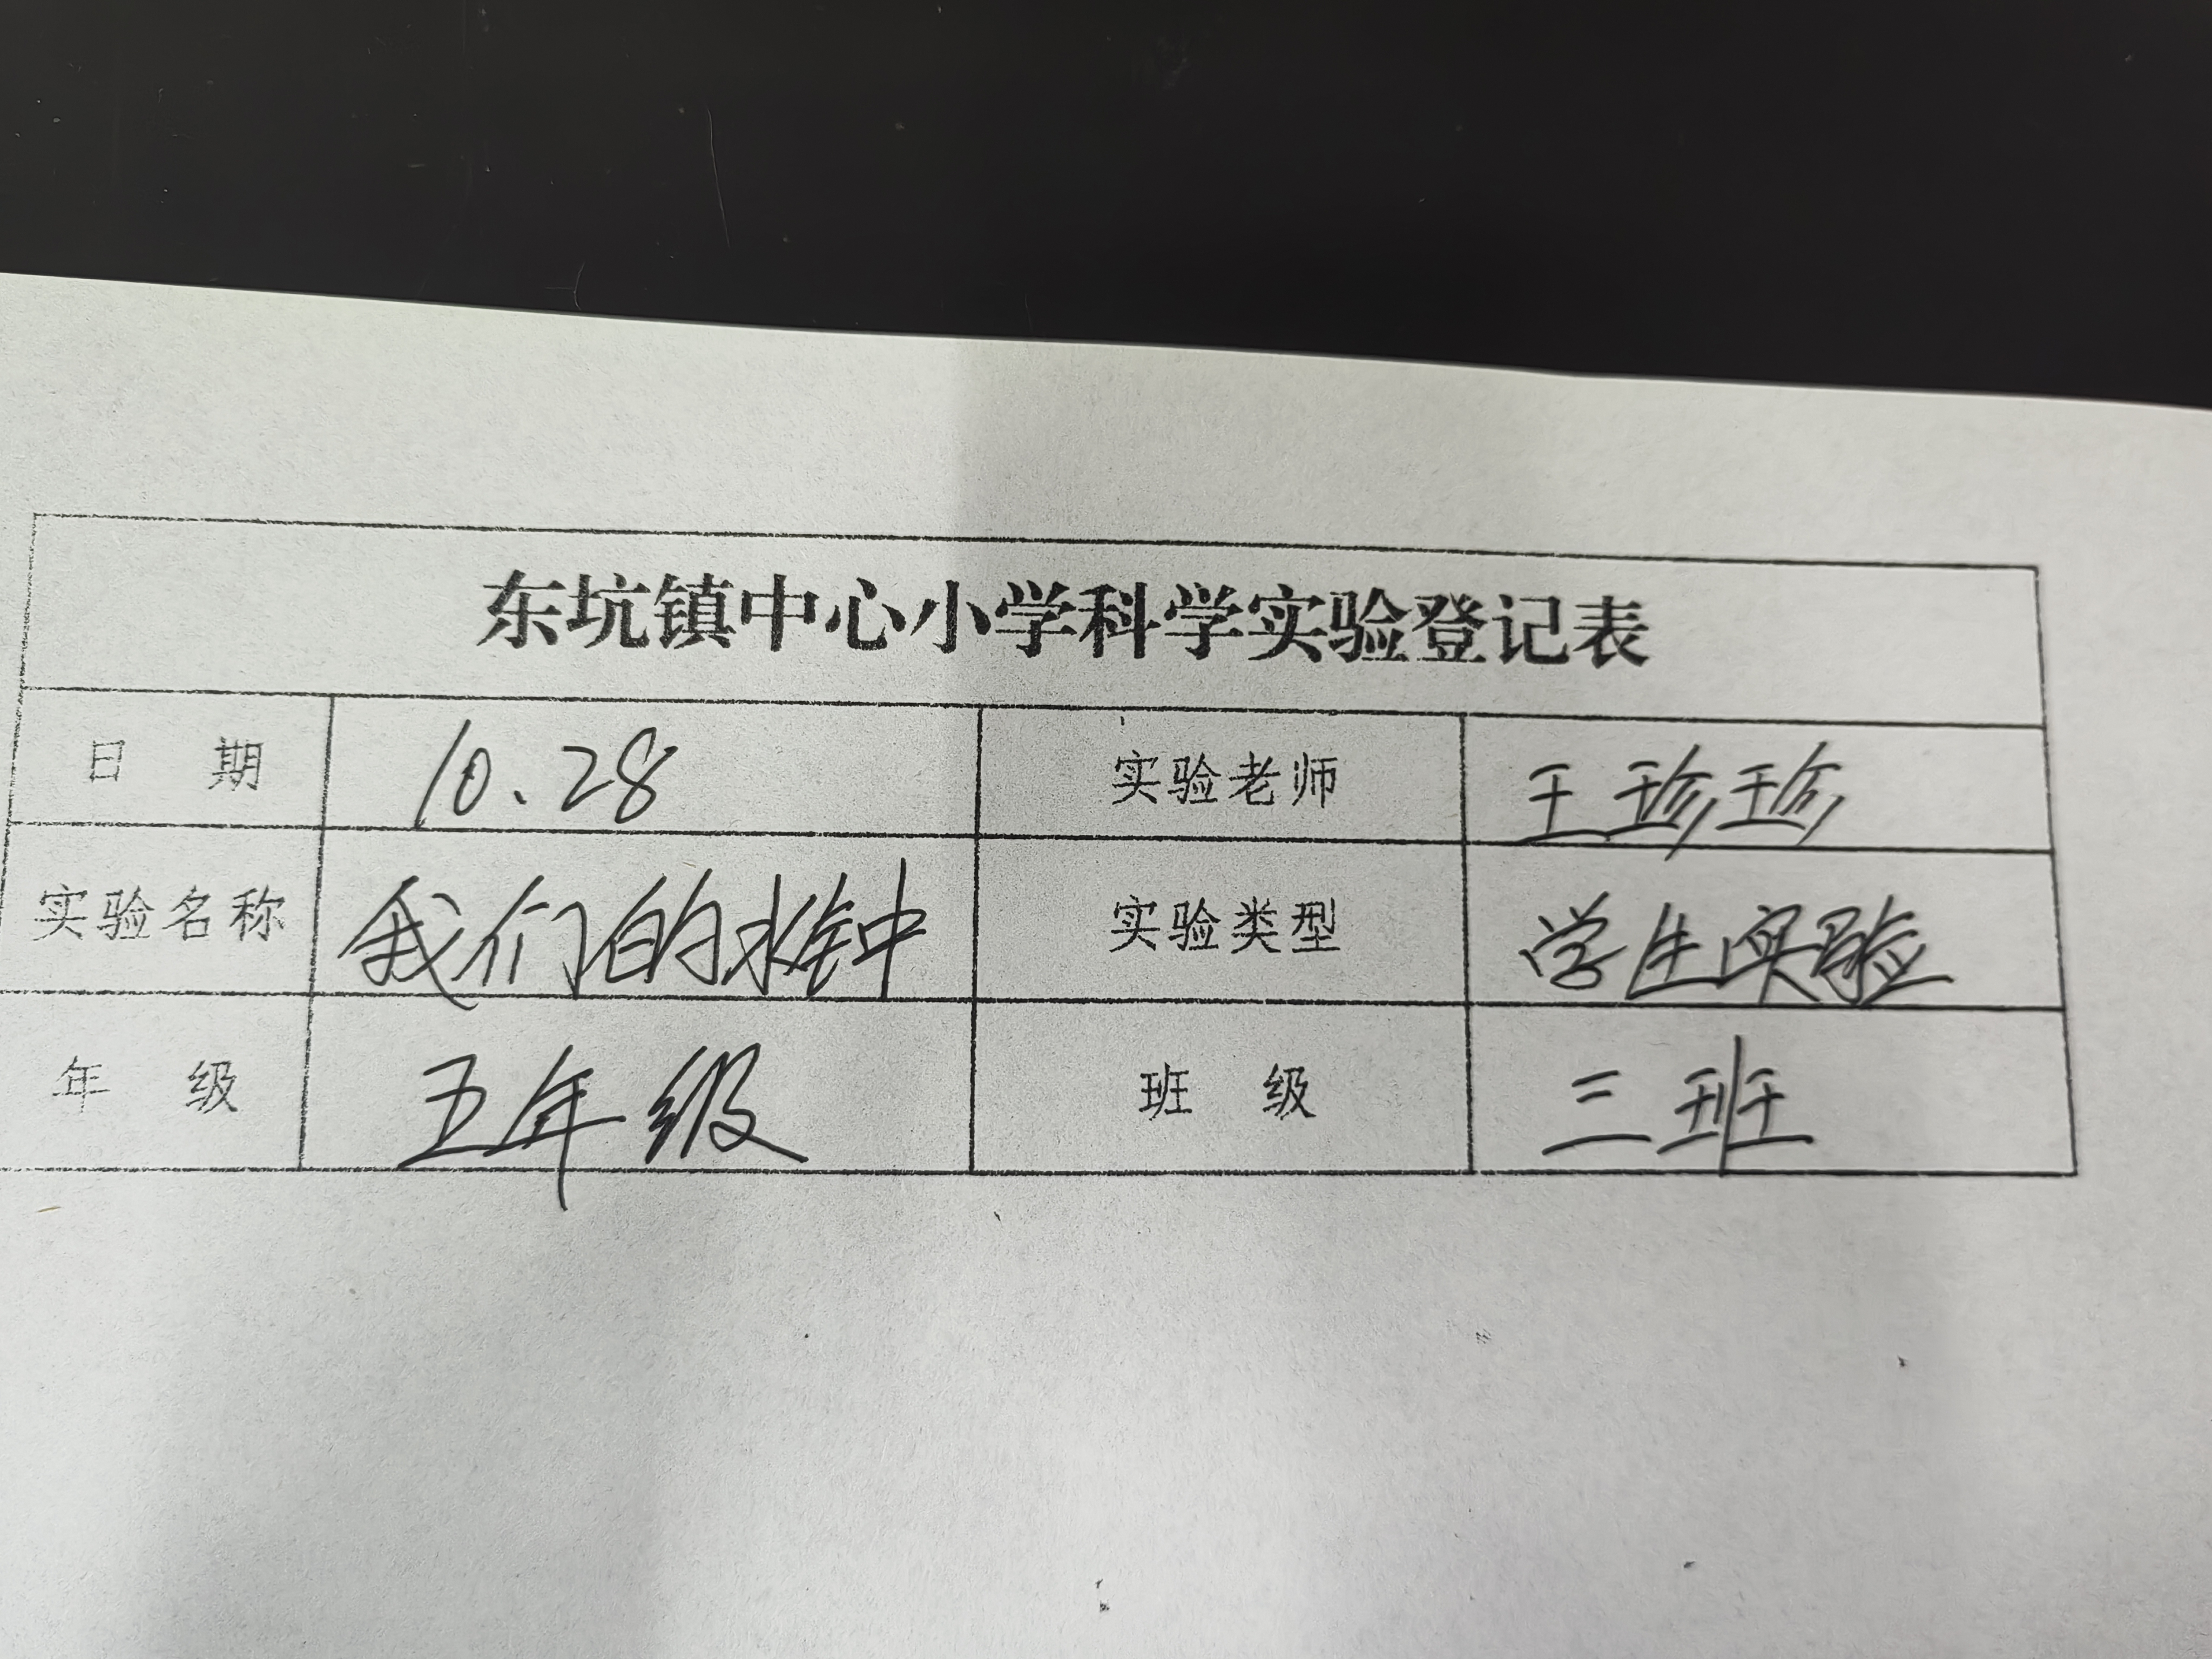 东坑镇中心小学科学实验登记表
日 期 10.28 实验老师 王珍珍
实验名称 我们的水钟 实验类型 学生实验
年 级 五年级 班 级 三班